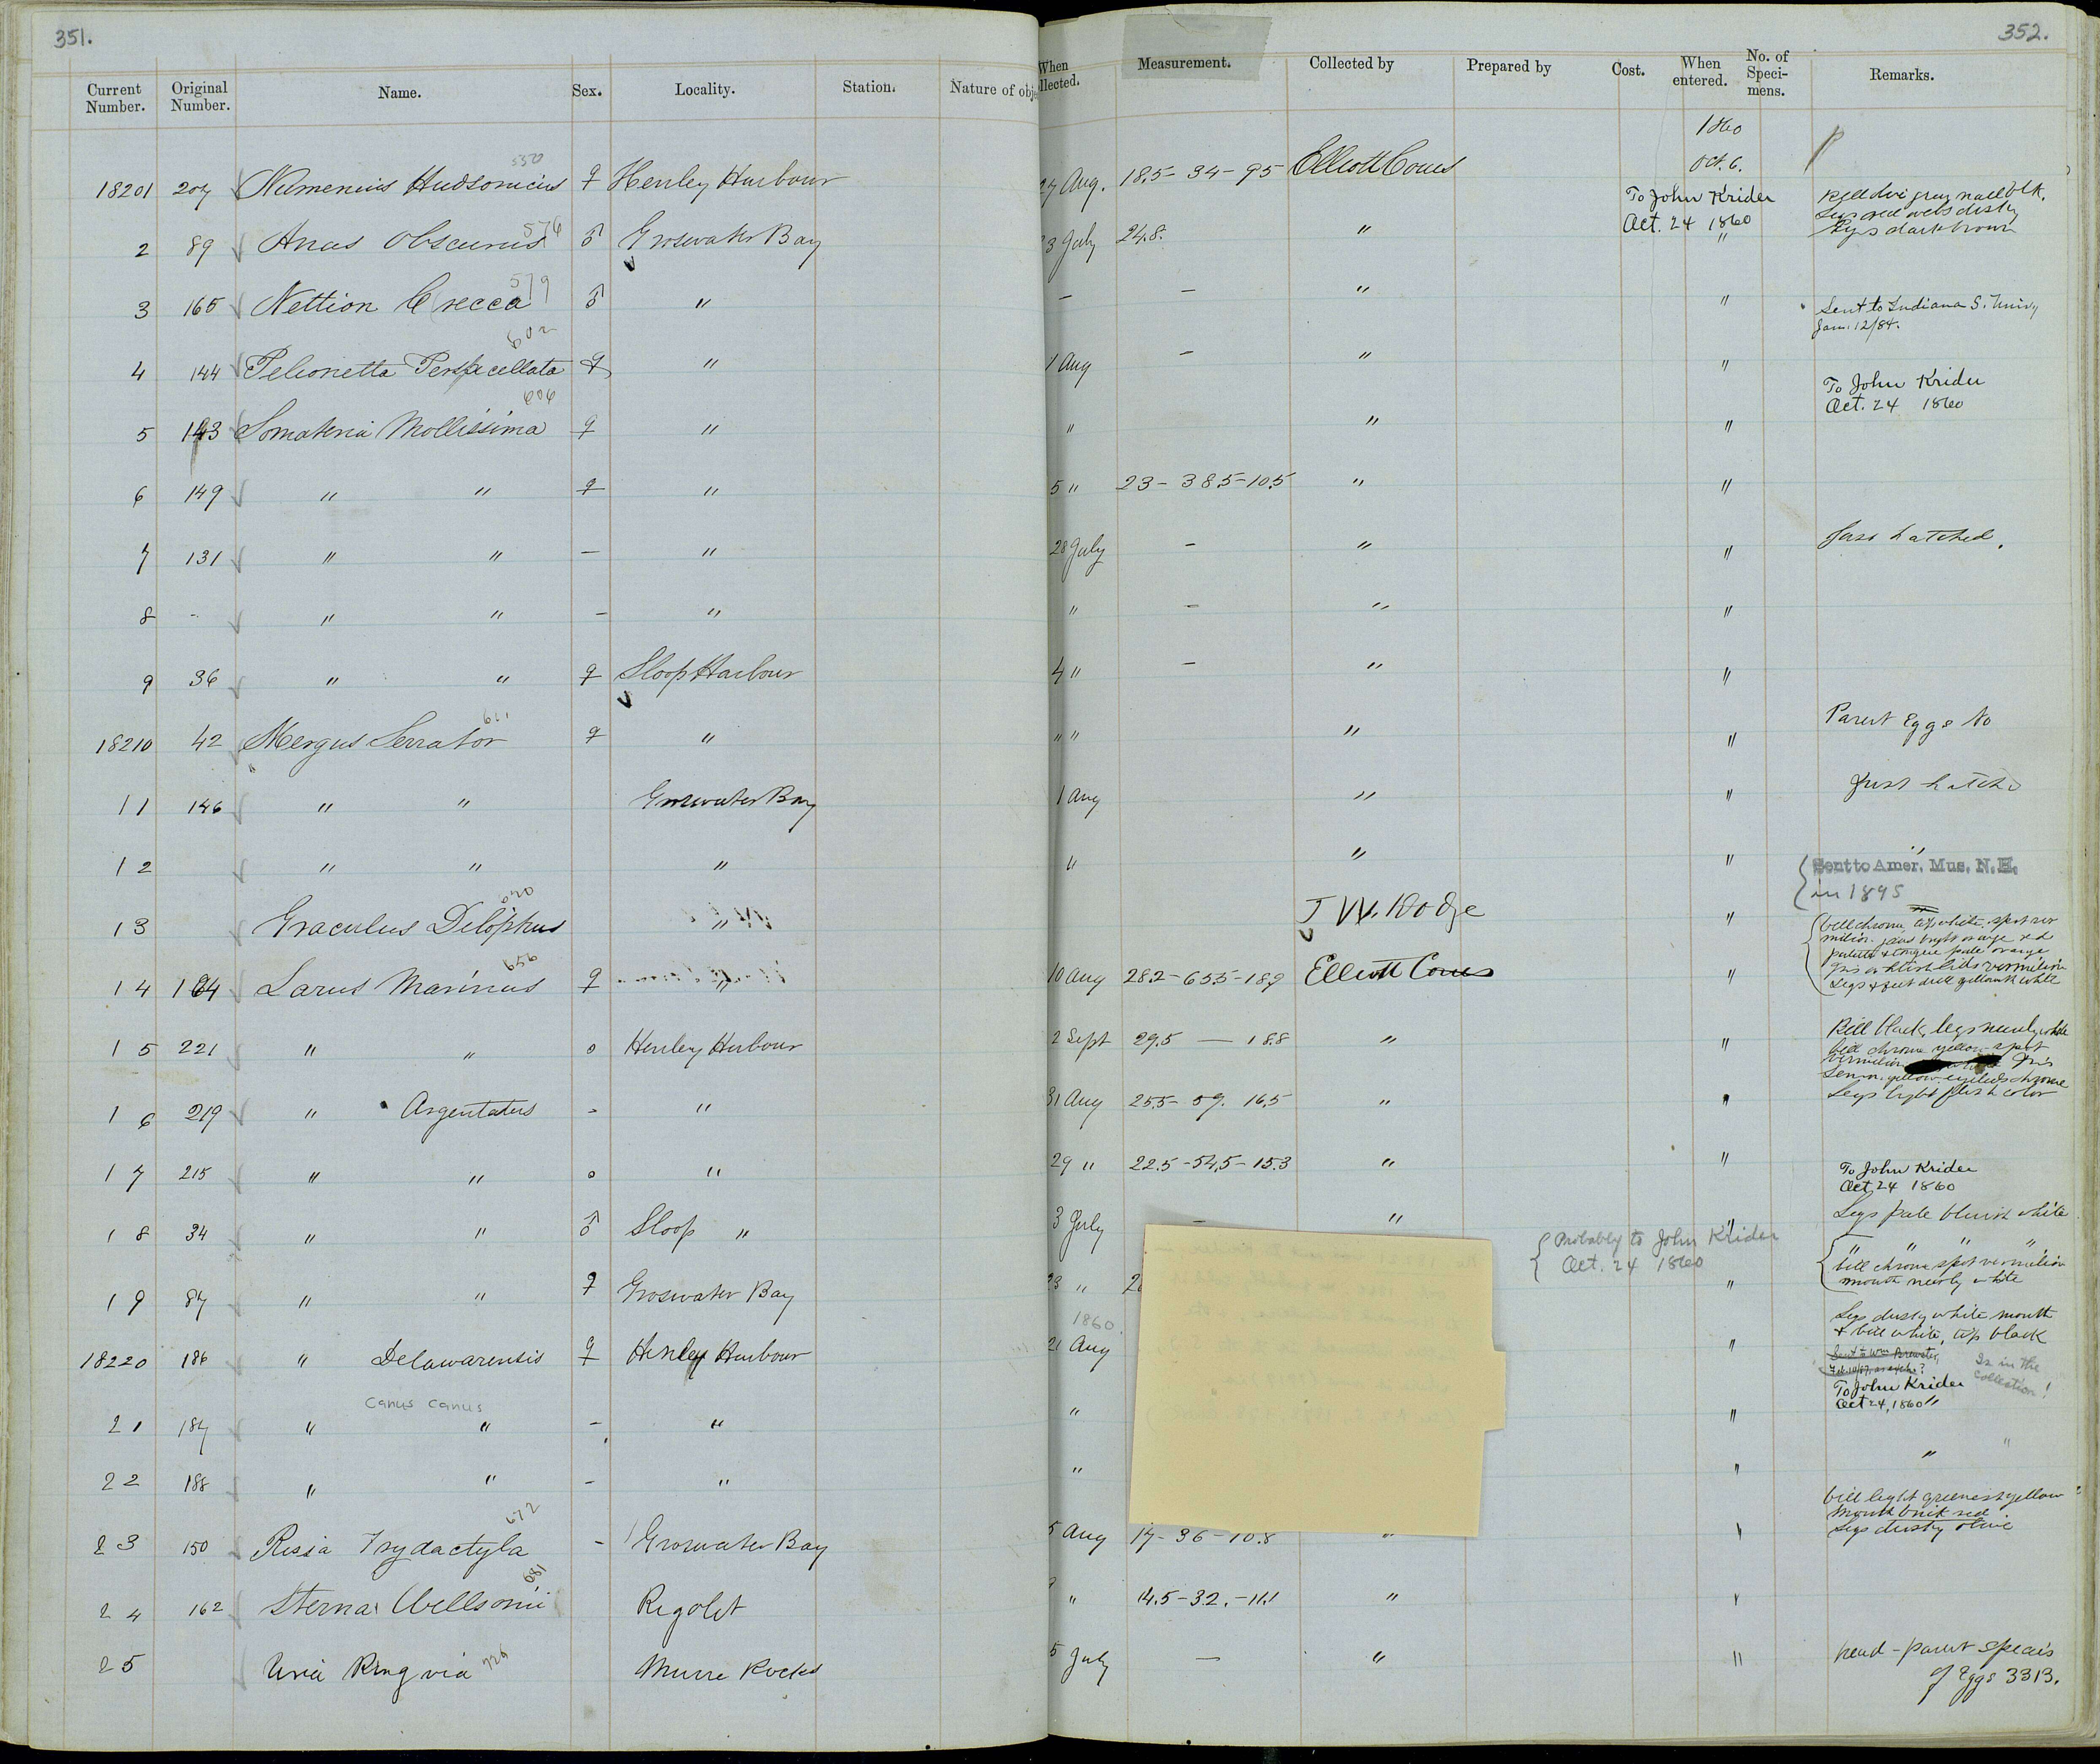 351.
352.
Current Number. Original Number. Name. Sex. Locality. Station. Nature of obje
When llected. Measurement. Collected by Prepared by Cost. When entered. No. of Speci- mens. Remarks.
1860
550
18201 207 Numenius Hudsonicus ♀ Henley Harbour 27 Aug. 18.5 - 34 - 9.5 Elliott Coues Oct. 6.
To John Krider
Oct. 24 1860
576
2 89 Anas Obscurus ♂ Groswater Bay 3 July 24.8. " "
Legs red webs dusky
Eyes dark brown
579
3 165 Nettion Crecca ♂ " — — " "
Sent to Indiana S. Univ,
Jan. 12/84.
602
4 144 Pelionetta Perspicellata ♀ " 1 Aug — " "
To John Krider
Oct. 24 1860
606
5 143 Somateria Mollissima ♀ " " " "
6 149 " " ♀ " 5 " 23 - 38.5 - 10.5 " "
7 131 " " — " 28 July — " " Just hatched.
8 - " " — " " — " "
9 36 " " ♀ Sloop Harbour 4 " — " "
611
18210 42 Mergus Serrator ♀ " " " " " Parent Eggs No
11 146 " " Groswater Bay 1 Aug " " Just hatchd
12 " " " " " " "
Sent to Amer. Mus. N. H.
in 1895
620
13 Graculus Dilophus " J W. Dodge "
bill chrome tip white, spot ver
milion
palate & tongue pale orange
656
14 164 Larus Marinus ♀ " 10 Aug 28.2 - 65.5 - 18.7 Elliott Coues "
Legs & feet dull yellowish white
15 221 " " o Henley Harbour 2 Sept 29.5 — 18.8 " "
Bill black, legs nearly white
bill chrome yellow spot
vermilion Iris
Lemon yellow eyelids chrome
Legs light flesh color
16 219 " Argentatus - " 31 Aug 25.5 - 59. 16.5 " "
17 215 " " o " 29 " 22.5 - 54.5 - 15.3 " "
To John Krider
Oct 24 1860
18 34 " " ♂ Sloop " 3 July — " " Legs pale bluish white
Probably to John Krider
Oct. 24 1860
" " "
bill chrome spot vermilion
mouth nearly white
19 87 " " ♀ Groswater Bay 23 " 2 "
1860.
Legs dusky white mouth
& bill white, tip black
18220 186 " Delawarensis ♀ Henley Harbour 21 Aug "
Sent to Wm Brewster,
Is in the collection!
To John Krider
Oct 24, 1860 "
Canus Canus
21 187 " " - " " "
22 188 " " - " " " " "
672
bill light greenest yellow
Mouth brick red
Legs dusky olive
23 150 Rissa Trydactyla - Groswater Bay 5 Aug 17 - 36 - 10.8 " "
681
24 162 Sterna Willsonii Rigolet " 14.5 - 32. - 11.1 " "
726
25 Uria Ringvia Murre Rocks 5 July — " "
head - parent species
of Eggs 3313.